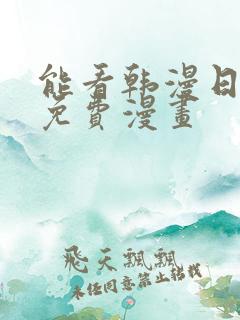 能看韩漫日
免費漫畫
飛天飄飄
未任同意禁止转载